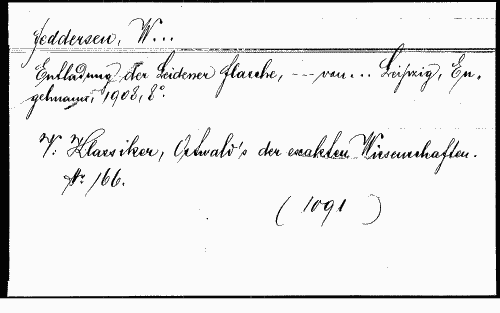 Feddersen, W...
Entladung der Leidener Flasche, --- von... Leipzig, En-
gelmann, 1908, 8°.
V: Klassiker, Ostwald's der exakten Wissenschaften.
Nr 166.
(1091)